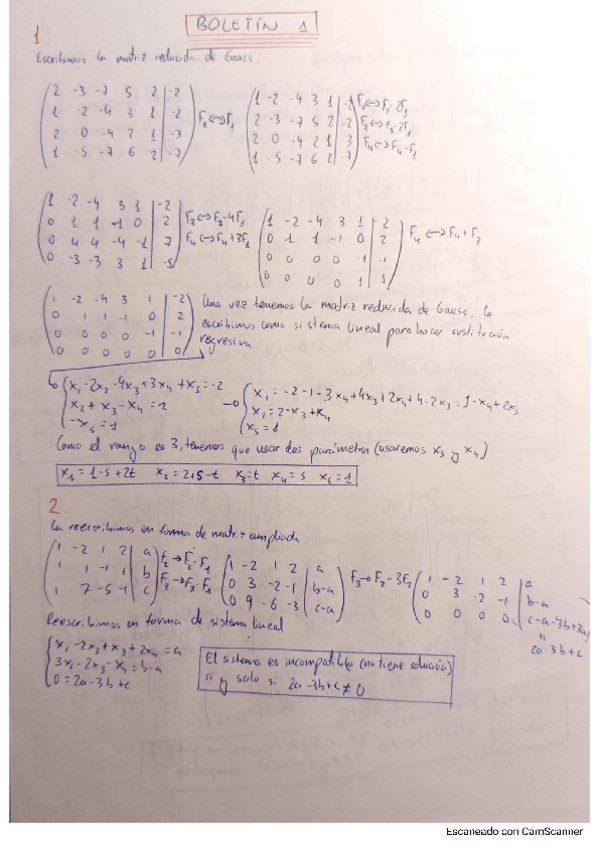 BOLETÍN 1
1.
Escribimos la matriz reducida de Gauss.
2 -3 -7 5 2 | -2
1 -2 -4 3 1 | -2
2 0 -4 2 1 | -3
1 -5 -7 6 2 | -7
F₂↔F₁
1 -2 -4 3 1 | -2
2 -3 -7 5 2 | -2
2 0 -4 2 1 | 3
1 -5 -7 6 2 | -7
F₂↔F₂-2F₁
F₃↔F₃-2F₁
F₄↔F₄-F₁
1 -2 -4 3 1 | -2
0 1 1 -1 0 | 2
0 4 4 -4 -1 | 7
0 -3 -3 3 1 | -5
F₃↔F₃-4F₁
F₄↔F₄+3F₁
1 -2 -4 3 1 | -2
0 1 1 -1 0 | 2
0 0 0 0 -1 | -1
0 0 0 0 1 | 1
F₄↔F₄+F₃
1 -2 -4 3 1 | -2
0 1 1 -1 0 | 2
0 0 0 0 -1 | -1
0 0 0 0 0 | 0
Una vez tenemos la matriz reducida de Gauss, lo
escribimos como sistema lineal para hacer sustitución
regresiva
x₁-2x₂-4x₃+3x₄+x₅=-2
x₂+x₃-x₄=2
-x₅=1
→
x₁=-2-1-3x₄+4x₃+2x₄+4-2x₃=1-x₄+2x₃
x₂=2-x₃+x₄
x₅=1
Como el rango es 3, tenemos que usar dos parámetros (usaremos x₃ y x₄)
x₁=1-s+2t x₂=2+s-t x₃=t x₄=s x₅=1
2.
La reescribimos en forma de matriz ampliada
1 -2 1 2 | a
1 1 -1 1 | b
1 7 -5 -1 | c
F₂→F₂-F₁
F₃→F₃-F₁
1 -2 1 2 | a
0 3 -2 -1 | b-a
0 9 -6 -3 | c-a
F₃→F₃-3F₂
1 -2 1 2 | a
0 3 -2 -1 | b-a
0 0 0 0 | c-a-3b+3a
=
2a-3b+c
Reescribimos en forma de sistema lineal
x₁-2x₂+x₃+2x₄=a
3x₂-2x₃-x₄=b-a
0=2a-3b+c
El sistema es incompatible (no tiene solución)
si y solo si 2a-3b+c≠0
Escaneado con CamScanner